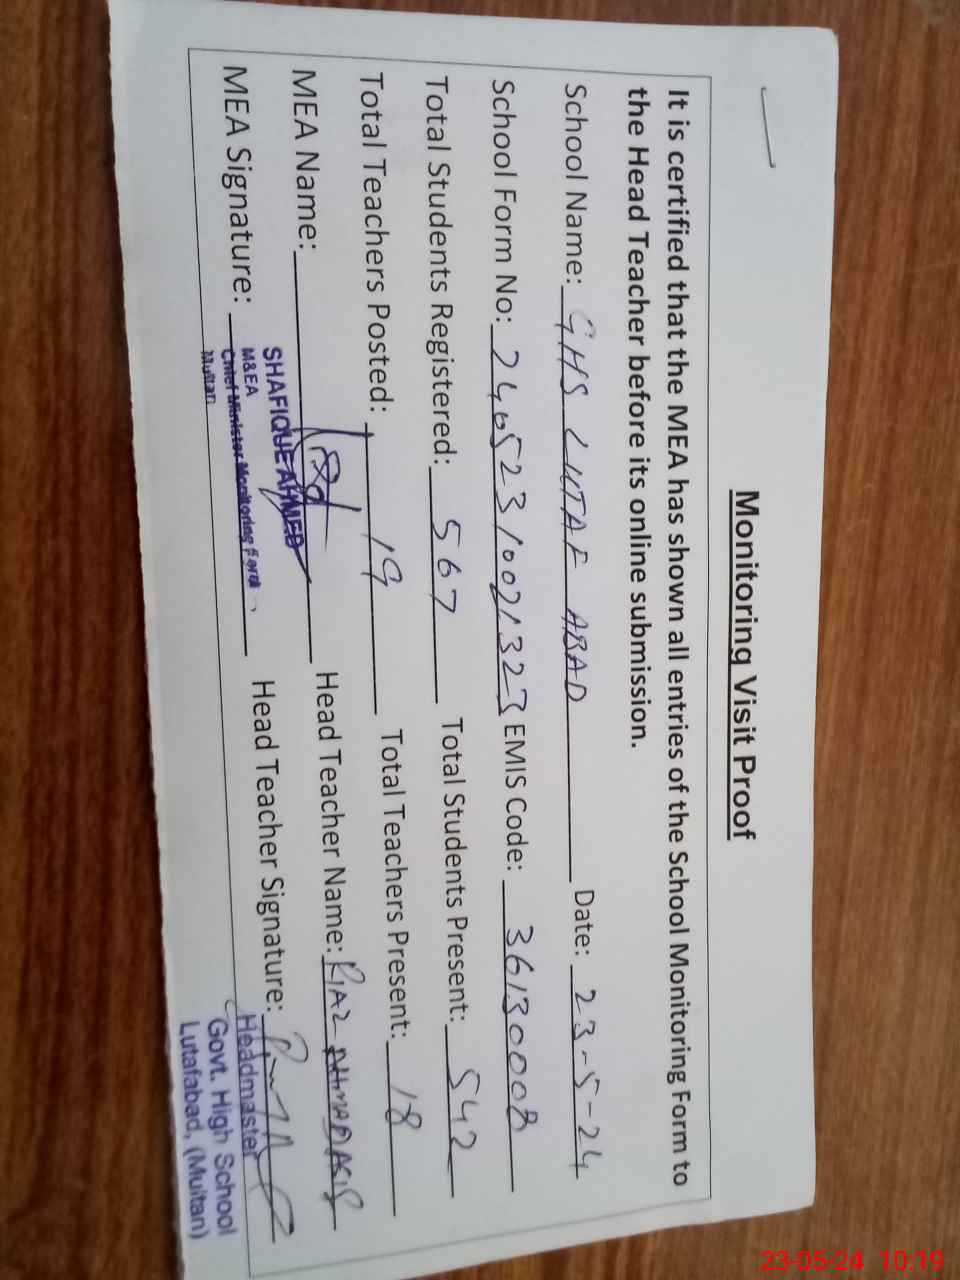 Monitoring Visit Proof
It is certified that the MEA has shown all entries of the School Monitoring Form to
the Head Teacher before its online submission.
School Name: GHS LUTAF ABAD Date: 23-5-24
School Form No: 2405231001323 EMIS Code: 36130008
Total Students Registered: 567 Total Students Present: 542
Total Teachers Posted: 19 Total Teachers Present: 18
MEA Name: Head Teacher Name: RIAZ AHMAD
MEA Signature: Head Teacher Signature:
SHAFIQUE AHMED
M&EA
Chief Minister Monitoring
Multan
Headmaster
Govt. High School
Lutafabad, (Multan)
23-05-24 10:19